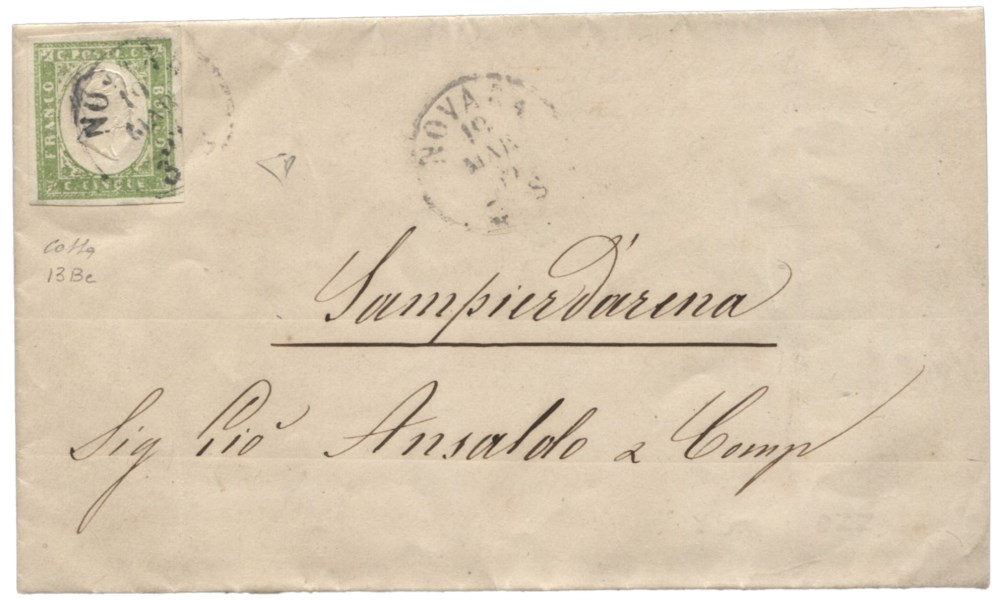 C. POSTE. DE
FRANCO
BOLLO
C. CINQUE
NOVARA
19
MAR
Cotta
13Bc
Sampierdarena
Sig Gio Ansaldo & Comp